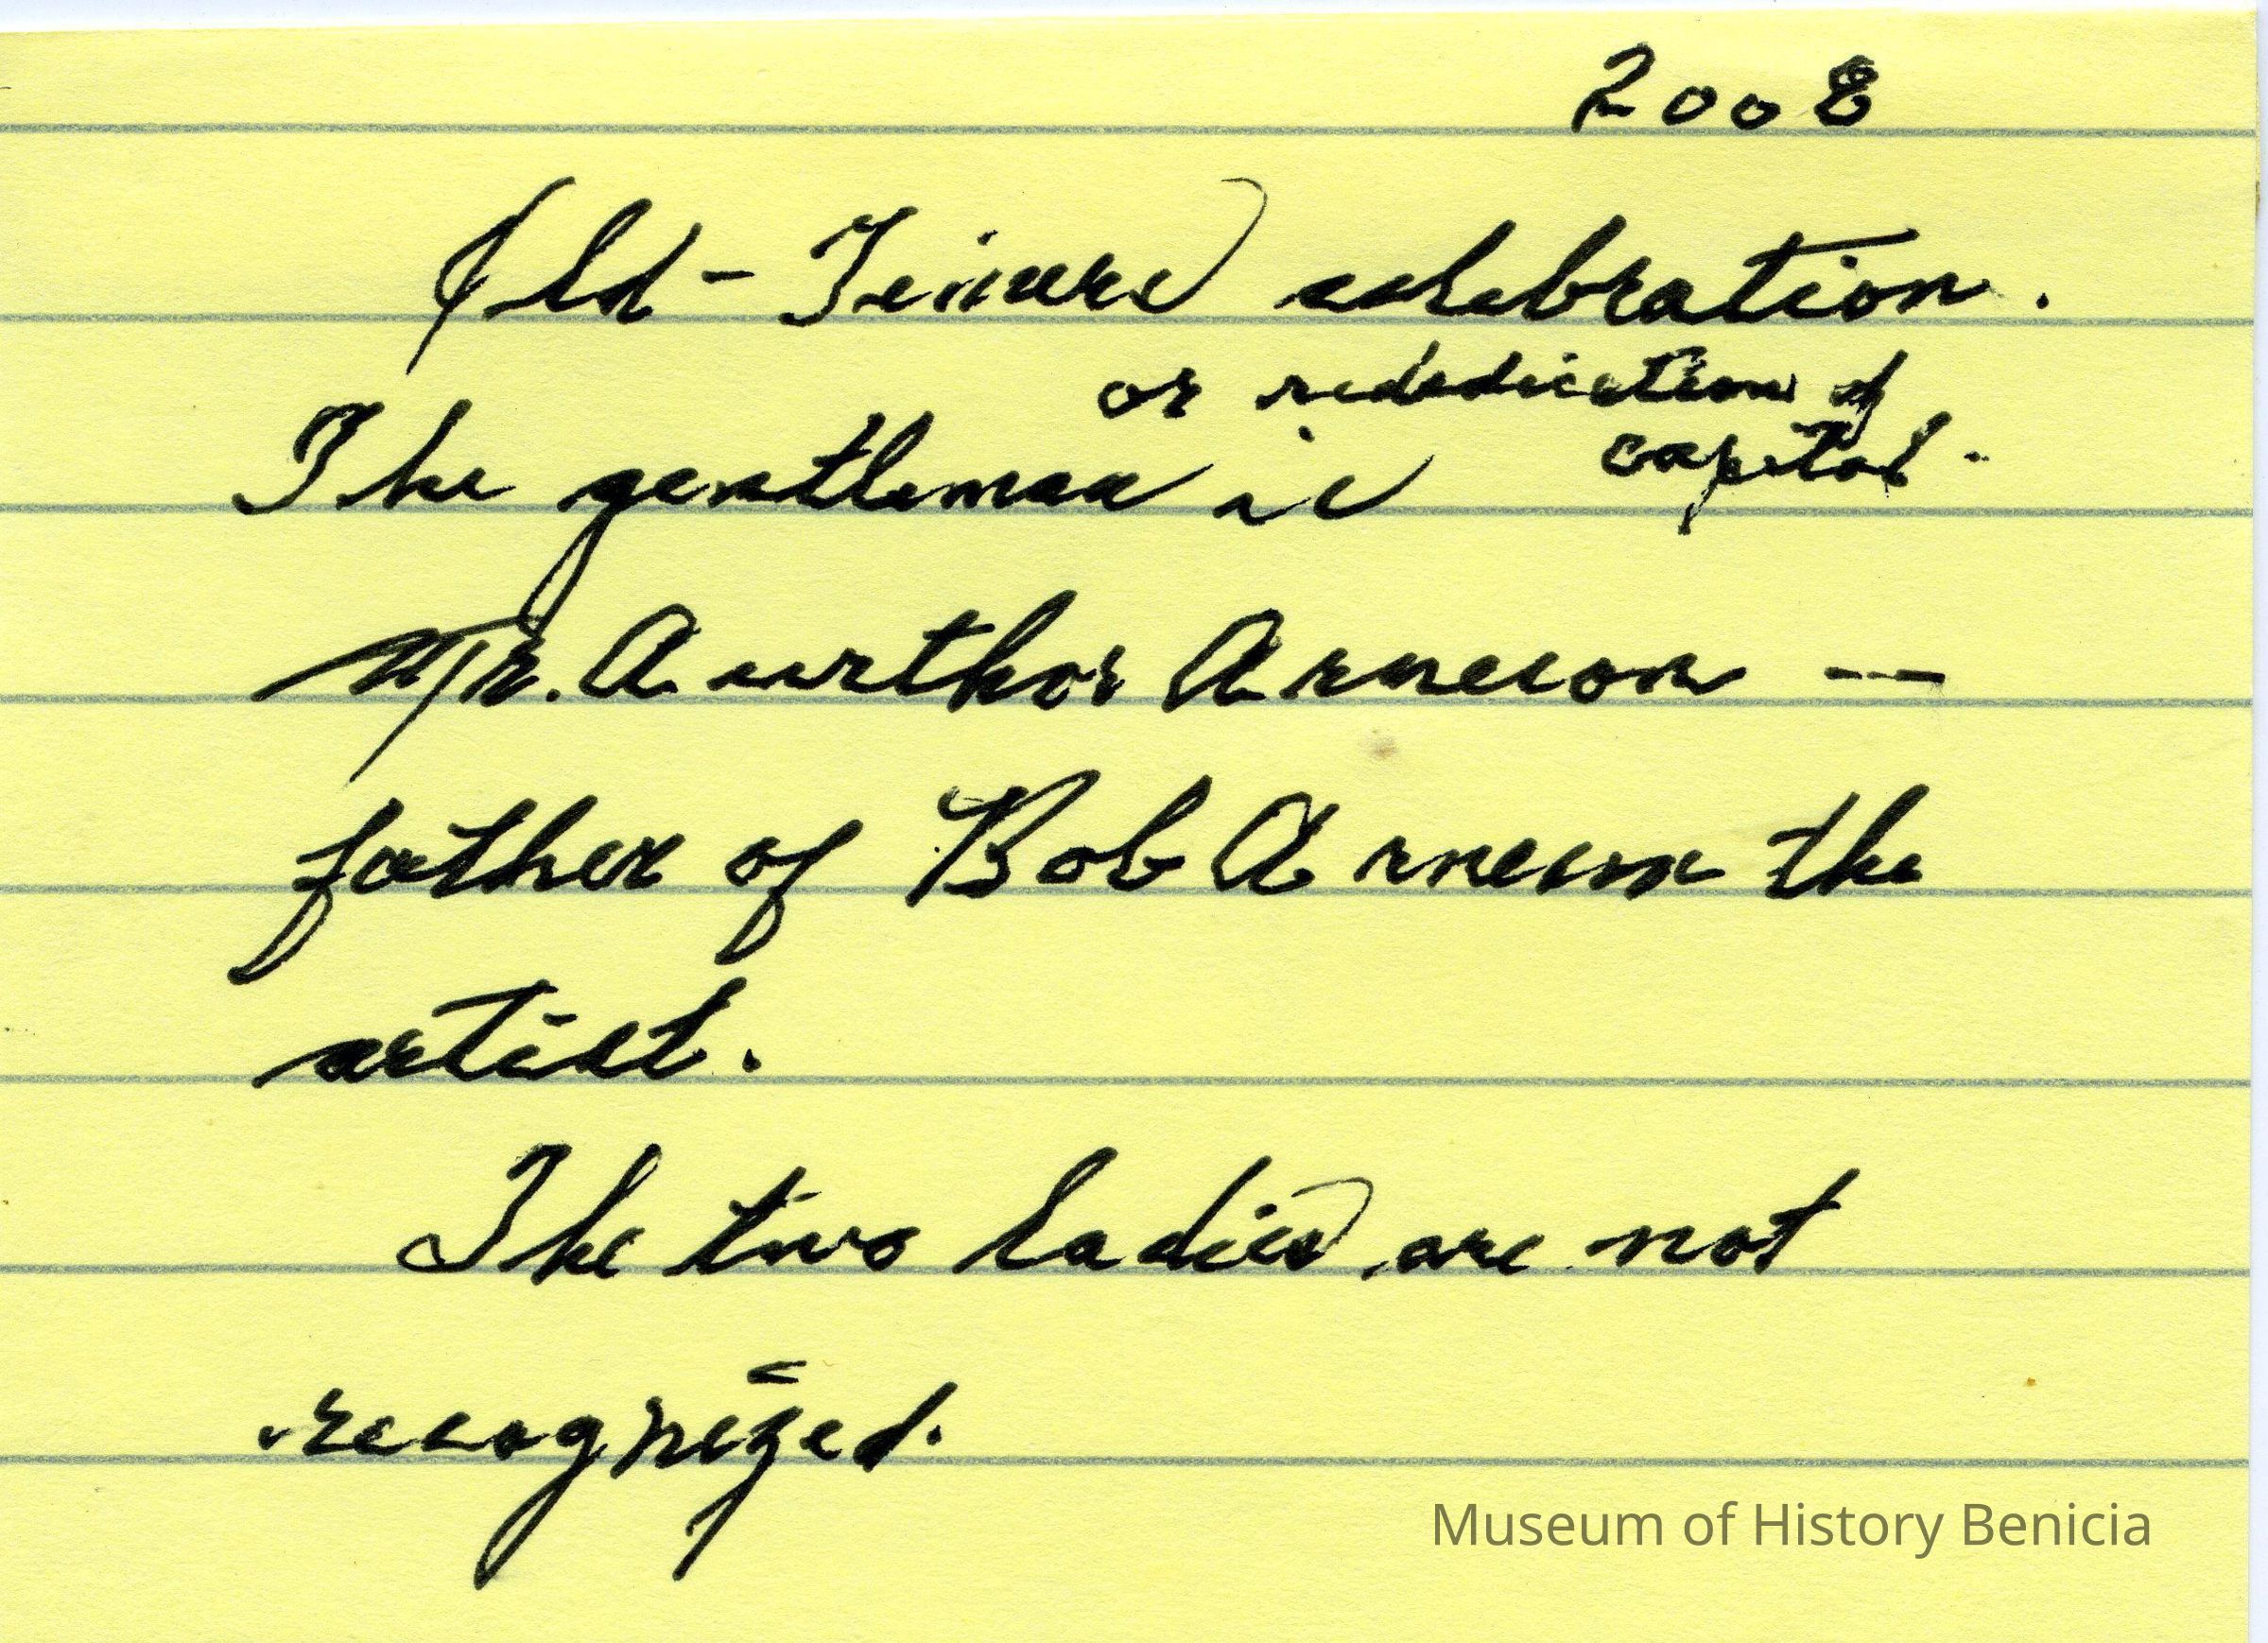 2008
Old-Timers celebration.
or rededication of
capitol.
The gentleman is
Mr. Aurthor Arneson --
father of Bob Arneson the
artist.
The two ladies are not
recognized.
Museum of History Benicia